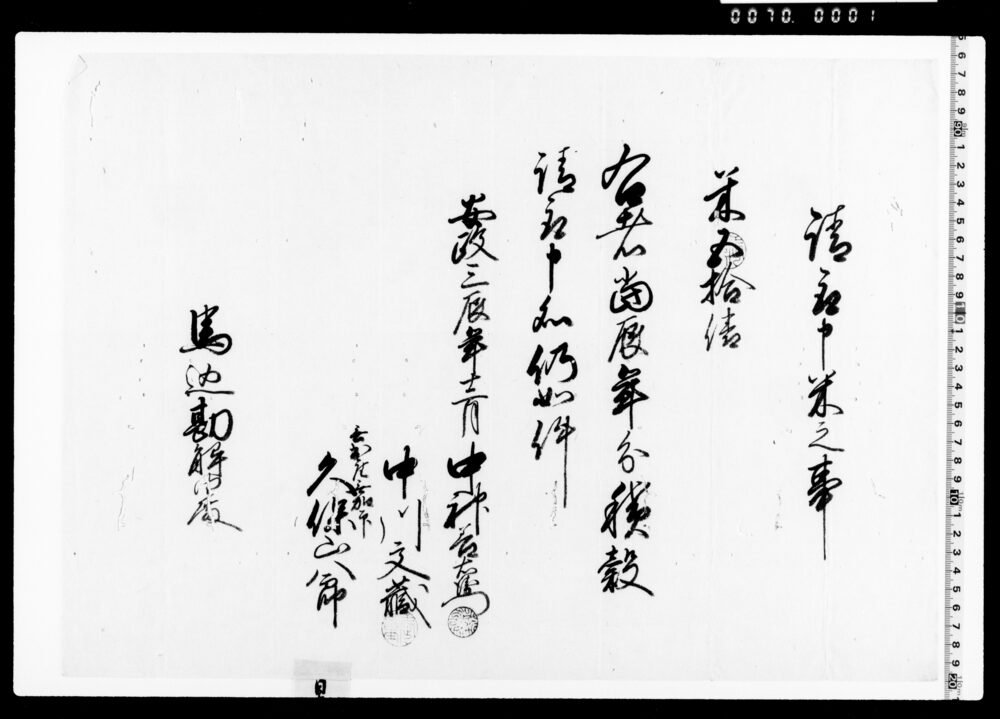 0070. 0001
請取申米之事
米五拾俵
右者当辰年分積穀
請取申処仍如件
安政三辰年十二月 中神善右衛門
中川文蔵
久保山八郎
馬込勘解由殿